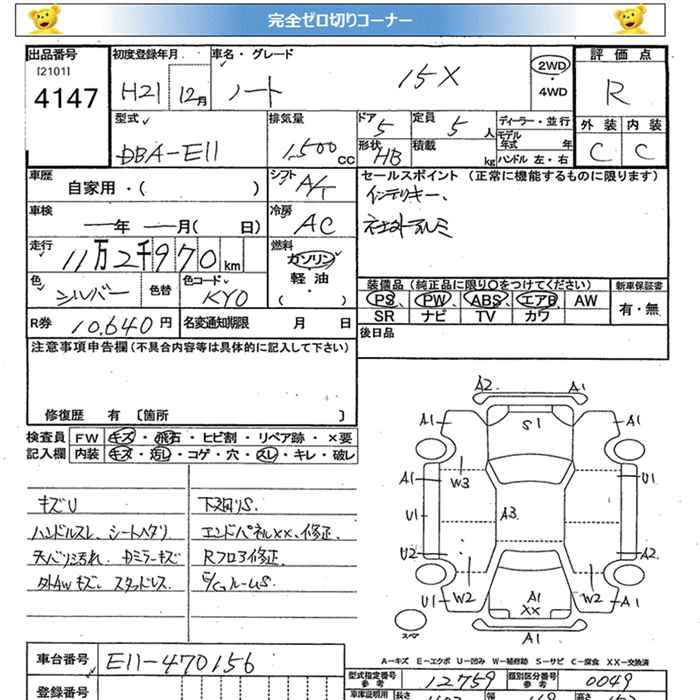 完全ゼロ切りコーナー
出品番号 初度登録年月 車名・グレード 評価点
[2101]
4147 H21 12月 ノート 15X 2WD・4WD R
型式 排気量 ドア 定員 ディーラー・並行 外装 内装
DBA-E11 1,500cc 5 5人 モデル年式 年 C C
形状 積載
HB kg ハンドル 左・右
車歴 シフト セールスポイント (正常に機能するものに限ります)
自家用・( ) A/T インテリキー、
車検 冷房 社外アルミ
ー年 ー月( 日) AC
走行 燃料
11万2千970km ガソリン・軽油・( )
色 色替 色コード 装備品 (純正品に限り○をつけてください) 新車保証書
シルバー KY0 PS PW ABS エアB AW 有・無
SR ナビ TV カワ
R券 10,640円 名変通知期限 月 日 後日品
注意事項申告欄(不具合内容等は具体的に記入して下さい)
修復歴 有 [箇所 ]
検査員記入欄 FW キズ・飛石・ヒビ割・リペア跡・×要
内装 キズ・汚し・コゲ・穴・スレ・キレ・破レ
キズU 下廻りS.
ハンドルスレ、シートヘタリ エンドパネルXX、修正、
天バリ汚れ. Rフロア修正.
外AWキズ、スタッドレス.
A2 A1
A1 S1 A1
W3
A1 U1
U1 A3
U2 A2
W2 W2
U1 A1 XX A1
スペア A1
A―キズ E―エクボ U―凹み W―補修跡 S―サビ C―腐食 XX―交換済
車台番号 E11-470156
型式指定番号 参考 12759 類別区分番号 参考 0049
登録番号
車検証明用 長さ 幅 高さ